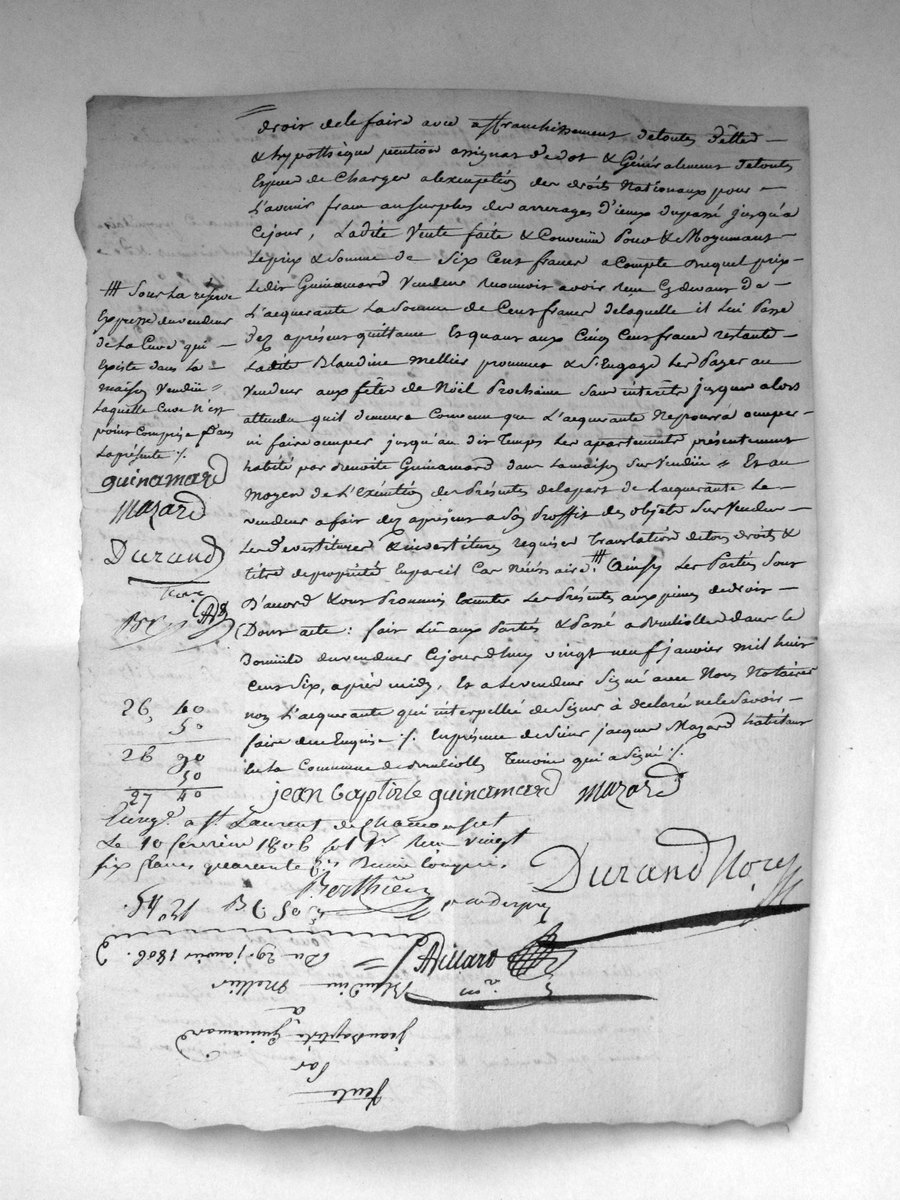 droit de le faire avec affranchissement de toutes dettes
& hypothèque pention assignat de dot & Généralement de toutes
Espece de Charges a l'exeption des droits Nationaux pour
L'avenir franc au surplus des arrerages d'iceux du passé jusqu'a
Cejour, Ladite Vente faite & Convenüe Pour & Moyennant
Le prix & Somme de Six Cent francs a Compte duquel prix
Ledit Guinamard Vendeur Reconnoit avoir Reçu Cydevant de
L'acquerante La Somme de Cent francs de laquelle il Lui Passe
dez aprésent quittance Et quant aux Cinq Cent francs restants
Ladite Blaudine Mellier promet & S'Engage Les Payer au
Vendeur aux fetes de Nöel Prochaine Sans interêts jusques alors
attendu quil demeure Convenu que L'acquerante Ne pourra occuper
ni faire occuper jusqu'au dit Temps Les apartements présentement
habité par Benoite Guinamard dans La maison Sus Vendüe = Et au
Moyen de L'Exécution des Présentes de la part de L'acquerante Le
vendeur a fait dez apresent a Son Proffit des objets Sus Vendus
Les devestitures & investitures requises Translation de tous droits &
titre de propriété En pareil Cas Nécessaire. # Ainsy Les Parties Sont
D'accord & ont Promis Executer Les Présentes aux peines de droit
Dont acte : fait Lû aux Parties & Passé a Brullioles dans le
Domicile du vendeur Cejourd'huy vingt neuf janvier mil huit
Cent Six, après midy, Et a Le vendeur Signé avec Nous Notaires
non L'acquerante qui interpellée de Signer à déclaré ne le Savoir
faire de ce Enquise /. En présence de Sieur jacques Mazard habitant
En La Commune de Brullioles Temoin qui a Signé /.
# Sous La reserve
Expresse du vendeur
de La Cuve qui
Existe dans La
maison Vendüe
Laquelle Cuve n'est
point Comprise dans
La présente /.
guinamard
Mazard
Durand
26, 40
50
26 90
50
27 40
jean baptiste guinamard Mazard
Enregé a St. Laurent de Chamousset
Le 10 fevrier 1806
six francs quarante
Berthier
Durand Nore
Du 29. janvier 1806.
Blaudine Mellier
a
jean Baptiste Guinamard
Par
Vente